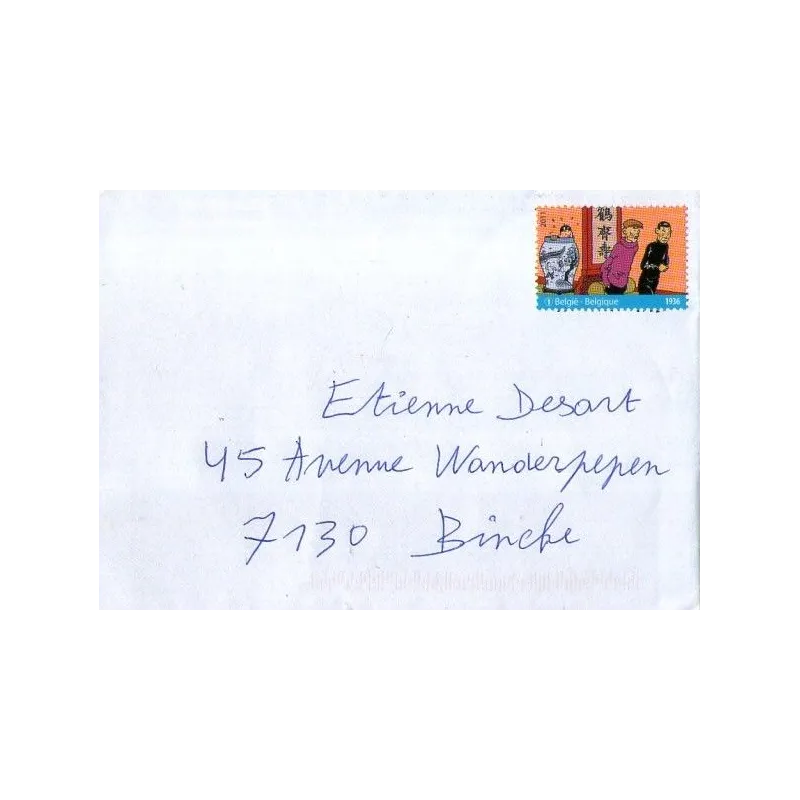 鶴
齊
壽
1 België - Belgique 1936
Etienne Desart
45 Avenue Wanderpepen
7130 Binche